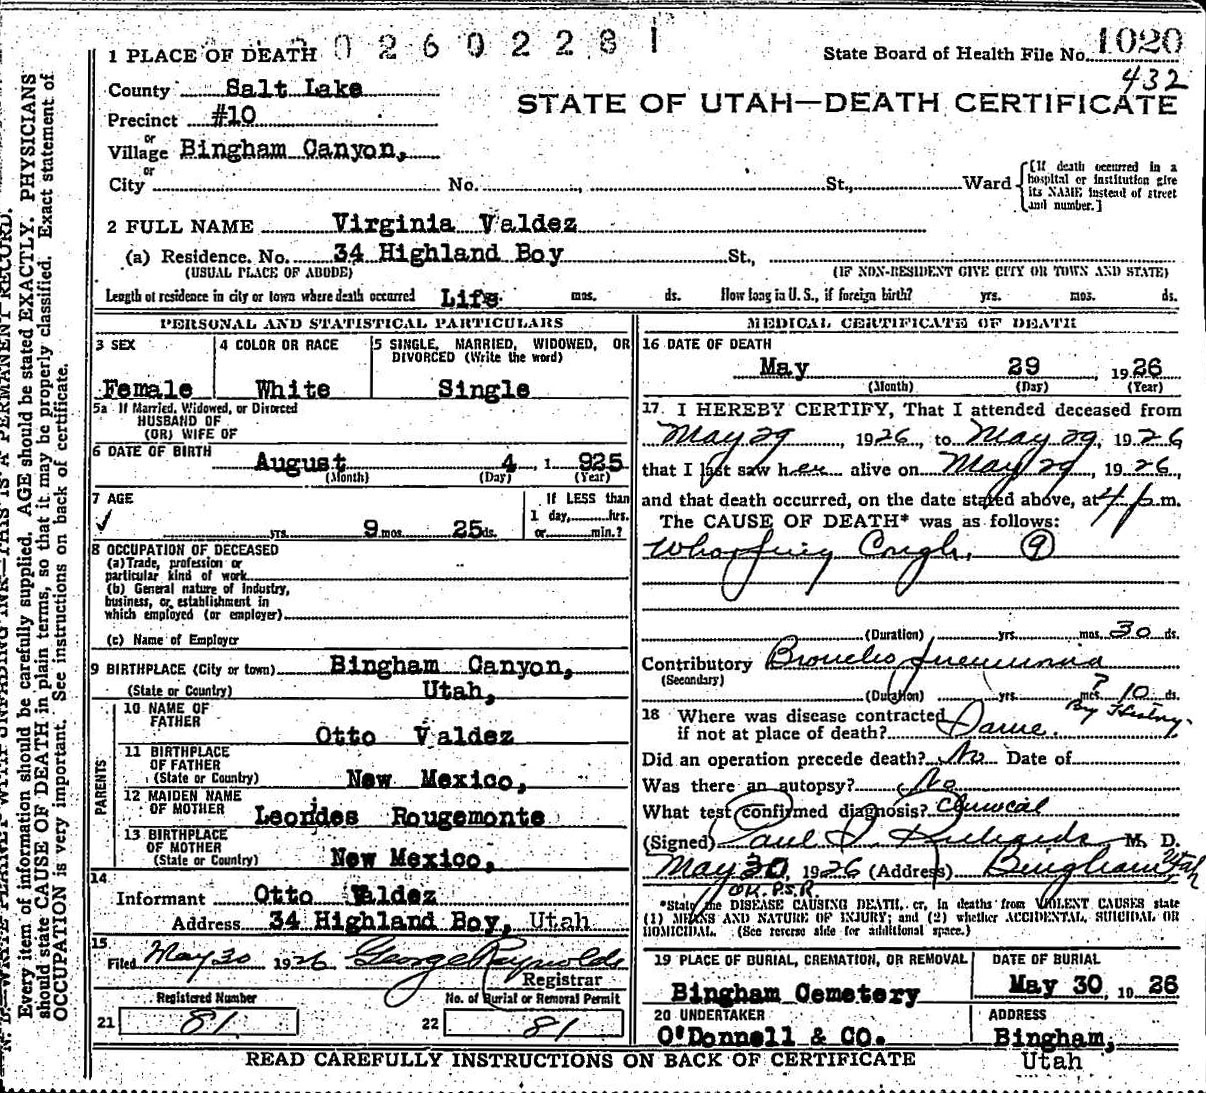 2 6 0 2 2 8 1
1 PLACE OF DEATH
State Board of Health File No. 1020
432
County Salt Lake
STATE OF UTAH—DEATH CERTIFICATE
Precinct #10
or
Village Bingham Canyon,
or
City No. , St., Ward
[If death occurred in a hospital or institution give its NAME instead of street and number.]
2 FULL NAME Virginia Valdez
(a) Residence. No. 34 Highland Boy St.,
(USUAL PLACE OF ABODE) (IF NON-RESIDENT GIVE CITY OR TOWN AND STATE)
Length of residence in city or town where death occurred Life mos. ds. How long in U. S., if foreign birth? yrs. mos. ds.
PERSONAL AND STATISTICAL PARTICULARS
3 SEX 4 COLOR OR RACE 5 SINGLE, MARRIED, WIDOWED, OR
DIVORCED (Write the word)
Female White Single
5a If Married, Widowed, or Divorced
HUSBAND OF
(OR) WIFE OF
6 DATE OF BIRTH
August 4, 1925
(Month) (Day) (Year)
7 AGE If LESS than
1 day, hrs.
yrs. 9 mos. 25 ds. or min.?
8 OCCUPATION OF DECEASED
(a) Trade, profession or
particular kind of work
(b) General nature of Industry,
business, or establishment in
which employed (or employer)
(c) Name of Employer
9 BIRTHPLACE (City or town) Bingham Canyon,
(State or Country) Utah,
PARENTS
10 NAME OF
FATHER
Otto Valdez
11 BIRTHPLACE
OF FATHER
(State or Country) New Mexico,
12 MAIDEN NAME
OF MOTHER Leonides Rougemonte
13 BIRTHPLACE
OF MOTHER
(State or Country) New Mexico,
14
Informant Otto Valdez
Address 34 Highland Boy, Utah
15
Filed May 30 1926 George Reynolds
Registrar
Registered Number No. of Burial or Removal Permit
21 81 22 81
MEDICAL CERTIFICATE OF DEATH
16 DATE OF DEATH
May 29 1926
(Month) (Day) (Year)
17. I HEREBY CERTIFY, That I attended deceased from
May 29, 1926, to May 29, 1926
that I last saw her alive on May 29, 1926,
and that death occurred, on the date stated above, at 4 p. m.
The CAUSE OF DEATH* was as follows:
Whooping Cough, 9
(Duration) yrs. mos. 30 ds.
Contributory Broncho pneumonia
(Secondary)
(Duration) yrs. mos. ? 10 ds.
By History.
18 Where was disease contracted
if not at place of death? Same.
Did an operation precede death? No Date of
Was there an autopsy? No
What test confirmed diagnosis? Clinical
(Signed) Paul S. Richards M. D.
May 30, 1926 (Address) Bingham Utah
OK. P.S.R
*State the DISEASE CAUSING DEATH, or, in deaths from VIOLENT CAUSES state
(1) MEANS AND NATURE OF INJURY; and (2) whether ACCIDENTAL, SUICIDAL OR
HOMICIDAL. (See reverse side for additional space.)
19 PLACE OF BURIAL, CREMATION, OR REMOVAL DATE OF BURIAL
Bingham Cemetery May 30, 1926
20 UNDERTAKER ADDRESS
O'Donnell & CO. Bingham,
Utah
READ CAREFULLY INSTRUCTIONS ON BACK OF CERTIFICATE
N. B.—WRITE PLAINLY WITH UNFADING INK—THIS IS A PERMANENT RECORD.
Every item of information should be carefully supplied. AGE should be stated EXACTLY. PHYSICIANS
should state CAUSE OF DEATH in plain terms, so that it may be properly classified. Exact statement of
OCCUPATION is very important. See instructions on back of certificate.